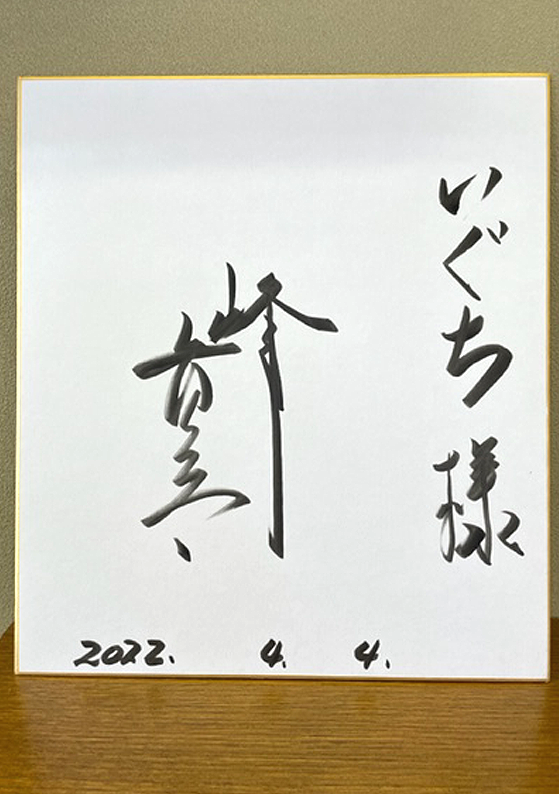 いぐち様
峰
2022. 4. 4.